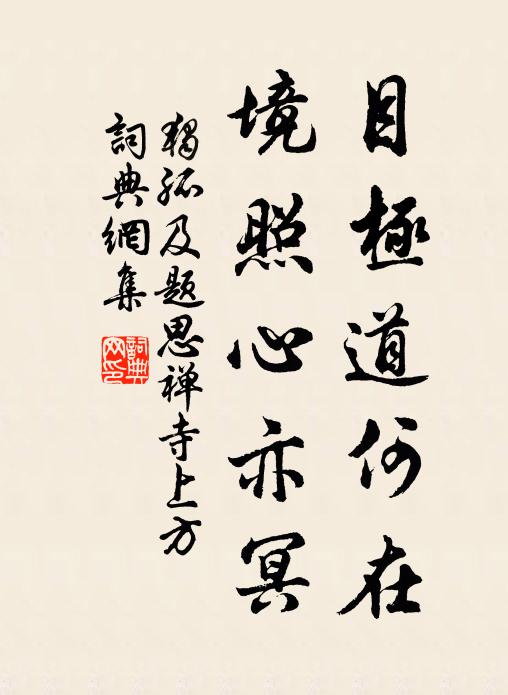 目極道何在
境照心亦冥
獨孤及題思禅寺上方
詞典網集
詞典
网印